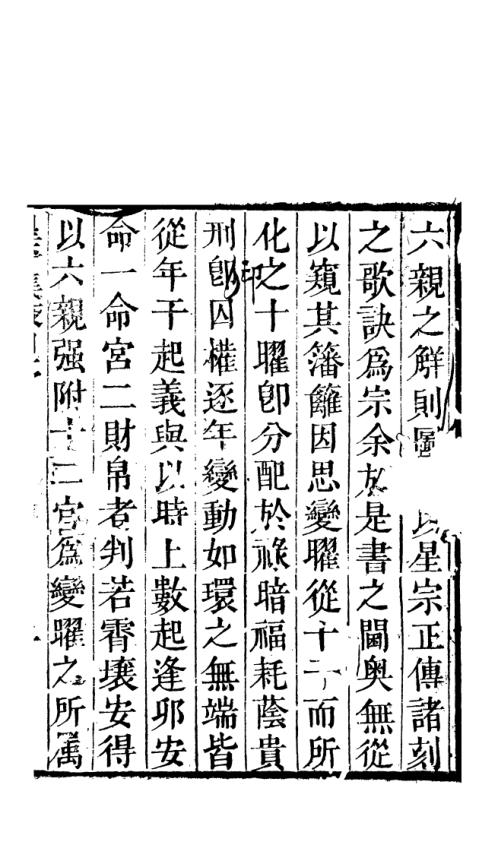 六親之解則 以星宗正傳諸刻
之歌訣爲宗余於是書之閫奧無從
以窺其籓籬因思變曜從十干而所
化之十曜卽分配於祿暗福耗蔭貴
刑卽囚權逐年變動如環之無端皆
印
從年干起義與以時上數起逢卯安
命一命宮二財帛者判若霄壤安得
以六親强附十二宮爲變曜之所属